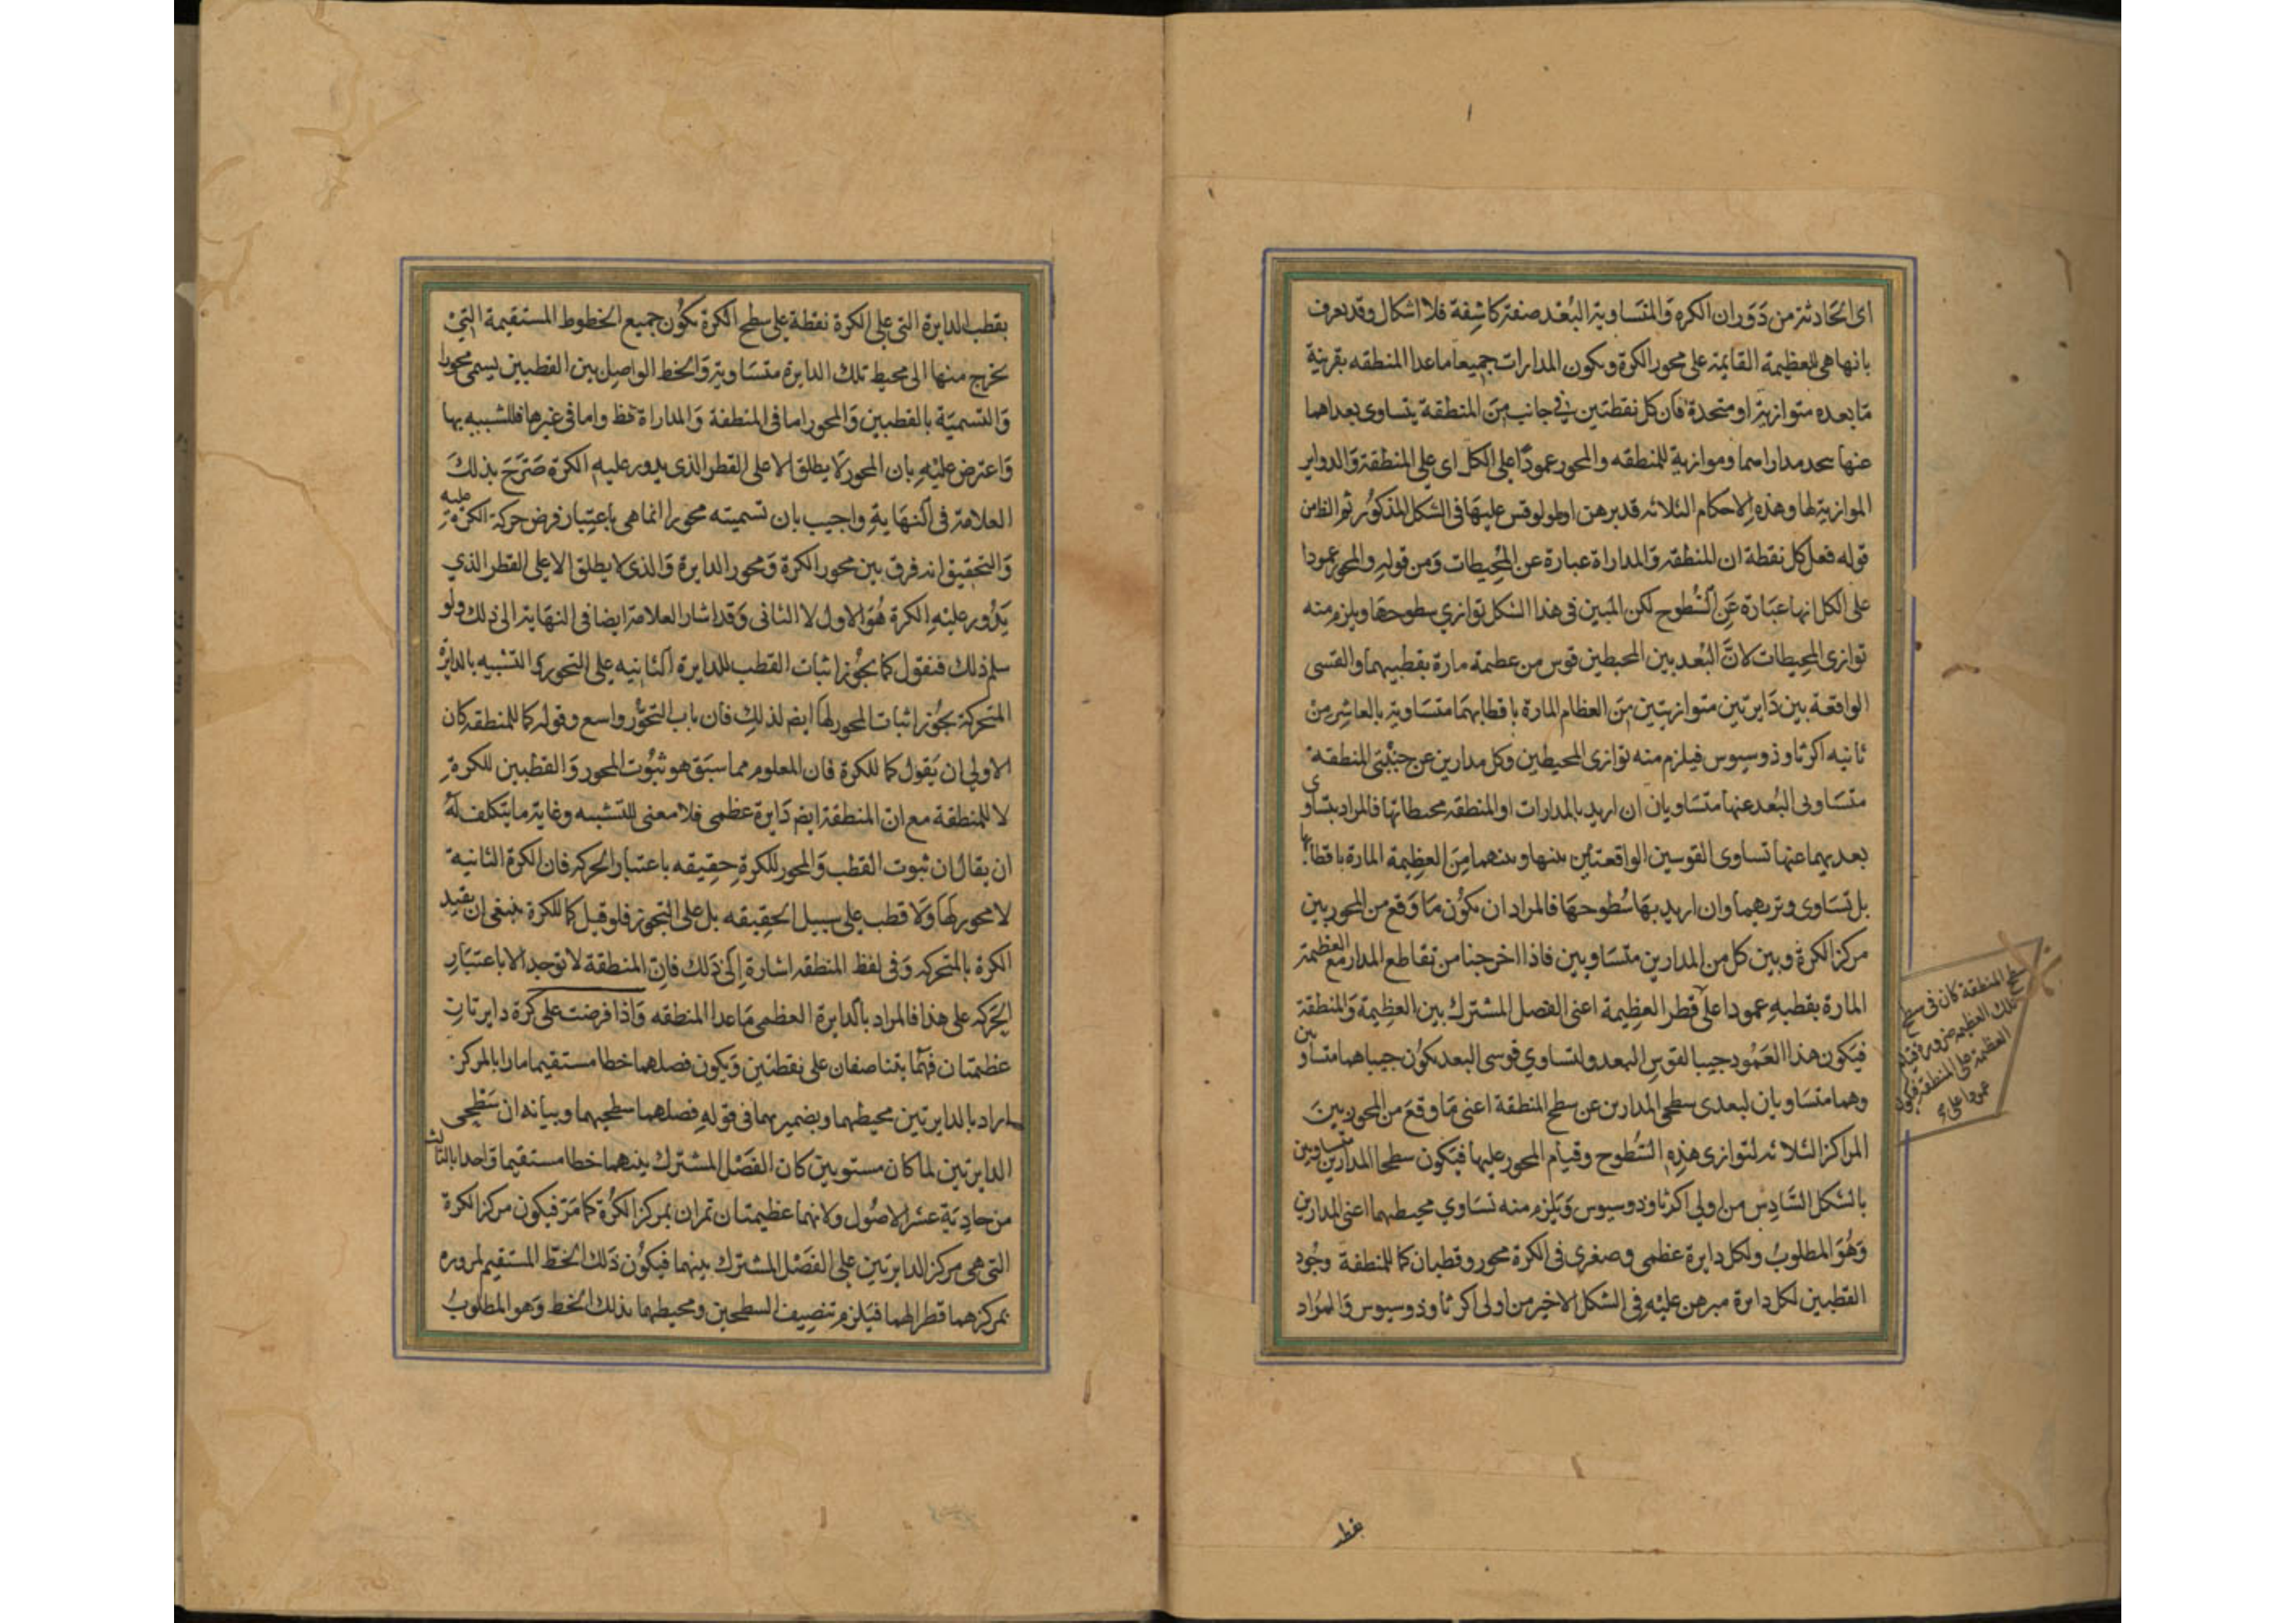 اى الحادثة من دوران الكرة والمتساوية البعد صفة كاشفة فلا اشكال وقد يعرف
بانها هى العظيمة القايمة على محور الكرة ويكون المدارات جميعا ما عدا المنطقه بقرينة
ما بعده متوازية او متحدة فان كل نقطتين فى جانب من المنطقة يتساوى بعداهما
عنها يتحد مداراهما وموازية للمنطقه والمحور عمودا على الكل اى على المنطقة والدواير
الموازية لها وهذه الاحكام الثلاثه قد برهن اوطولوقس عليها فى الشكل المذكور ثم الظاهر من
قوله فعل كل نقطة ان المنطقه والمداراة عبارة عن المحيطات ومن قوله والمحور عمودا
على الكل انها عبارة عن السطوح لكن المبين فى هذا الشكل توازي سطوحها ويلزم منه
توازى المحيطات لان البعد بين المحيطين قوس من عظيمة مارة بقطبيهما والقسى
الواقعة بين دايرتين متوازيتين من العظام المارة باقطابهما متساوية بالعاشر من
ثانيه اكر ثاوذوسيوس فيلزم منه توازى المحيطين وكل مدارين عن جنبتى المنطقة
متساويى البعد عنها متساويان ان اريد بالمدارات او المنطقه محيطاتها فالمراد بتساوى
بعديهما عنها تساوى القوسين الواقعتين بينها وبينهما من العظيمة المارة باقطابها
بل تساوى وتريهما وان اريد بها سطوحها فالمراد ان يكون ما وقع من المحور بين
مركز الكرة وبين كل من المدارين متساويين فاذا اخرجنا من تقاطع المدار مع العظيمة
المارة بقطبيه عمودا على قطر العظيمة اعنى الفصل المشترك بين العظيمة والمنطقة
فيكون هذا العمود جيبا لقوس البعد ولتساوي قوسى البعد يكون جيباهما متساويين
وهما متساويان لبعدى سطحى المدارين عن سطح المنطقة اعنى ما وقع من المحور بين
المراكز الثلاثه لتوازى هذه السطوح وقيام المحور عليها فيكون سطحا المدارين متساويين
بالشكل السادس من اولى اكر ثاوذوسيوس ويلزم منه تساوي محيطيهما اعنى المدارين
وهو المطلوب ولكل دايرة عظمى وصغرى فى الكرة محور وقطبان كما للمنطقة وجود
القطبين لكل دايرة مبرهن عليه فى الشكل الاخير من اولى اكر ثاوذوسيوس والمراد
سطح المنطقة كان فى سطح
تلك العظيمة ضرورة قيام
العظيمة على المنطقة فيكون
عمودا على
بقطب الدايرة التى على الكرة نقطة على سطح الكرة يكون جميع الخطوط المستقيمة التى
يخرج منها الى محيط تلك الدايرة متساوية والخط الواصل بين القطبين يسمى محورا
والتسمية بالقطبين والمحور اما فى المنطقة والمداراة فظ واما فى غيرها فللشبيه بها
واعترض عليه بان المحور لا يطلق الا على القطر الذى يدور عليه الكرة صرح بذلك
العلامة فى النهاية واجيب بان تسميته محورا انما هى باعتبار فرض حركة الكرة عليه
والتحقيق انه فرق بين محور الكرة ومحور الدايرة والذى لا يطلق الا على القطر الذي
يدور عليه الكرة هو الاول لا الثانى وقد اشار العلامة ايضا فى النهاية الى ذلك ولو
سلم ذلك فنقول كما يجوز اثبات القطب للدايرة الثانيه على التجوز والتشبيه بالدايرة
المتحركة يجوز اثبات المحور لها ايضا لذلك فان باب التجوز واسع وقوله كما للمنطقه كان
الاولى ان يقول كما للكرة فان المعلوم مما سبق هو ثبوت المحور والقطبين للكرة
لا للمنطقة مع ان المنطقة ايضا دايرة عظمى فلا معنى للتشبيه وغاية ما يتكلف له
ان يقال ان ثبوت القطب والمحور للكرة حقيقه باعتبار الحركه فان الكرة الثانية
لا محور لها ولا قطب على سبيل الحقيقه بل على التجوز فلو قيل كما للكرة ينبغى ان يقيد
الكرة بالمتحركه وفى لفظ المنطقه اشارة الى ذلك فان المنطقة لا توجد الا باعتبار
الحركه على هذا فالمراد بالدايرة العظمى ما عدا المنطقه واذا فرضت على كرة دايرتان
عظيمتان فهما يتناصفان على نقطتين ويكون فصلهما خطا مستقيما مارا بالمركز
اراد بالدايرتين محيطهما وبضميرهما فى قوله فصلهما سطحيهما وبيانه ان سطحى
الدايرتين لما كان مستويين كان الفصل المشترك بينهما خطا مستقيما واحدا بالثالث
من حادية عشر الاصول ولانهما عظيمتان تمران بمركز الكرة كما مر فيكون مركز الكرة
التى هى مركز الدايرتين على الفصل المشترك بينهما فيكون ذلك الخط المستقيم لمروره
بمركزهما قطرا لهما فيلزم تنصيف السطحين ومحيطهما بذلك الخط وهو المطلوب